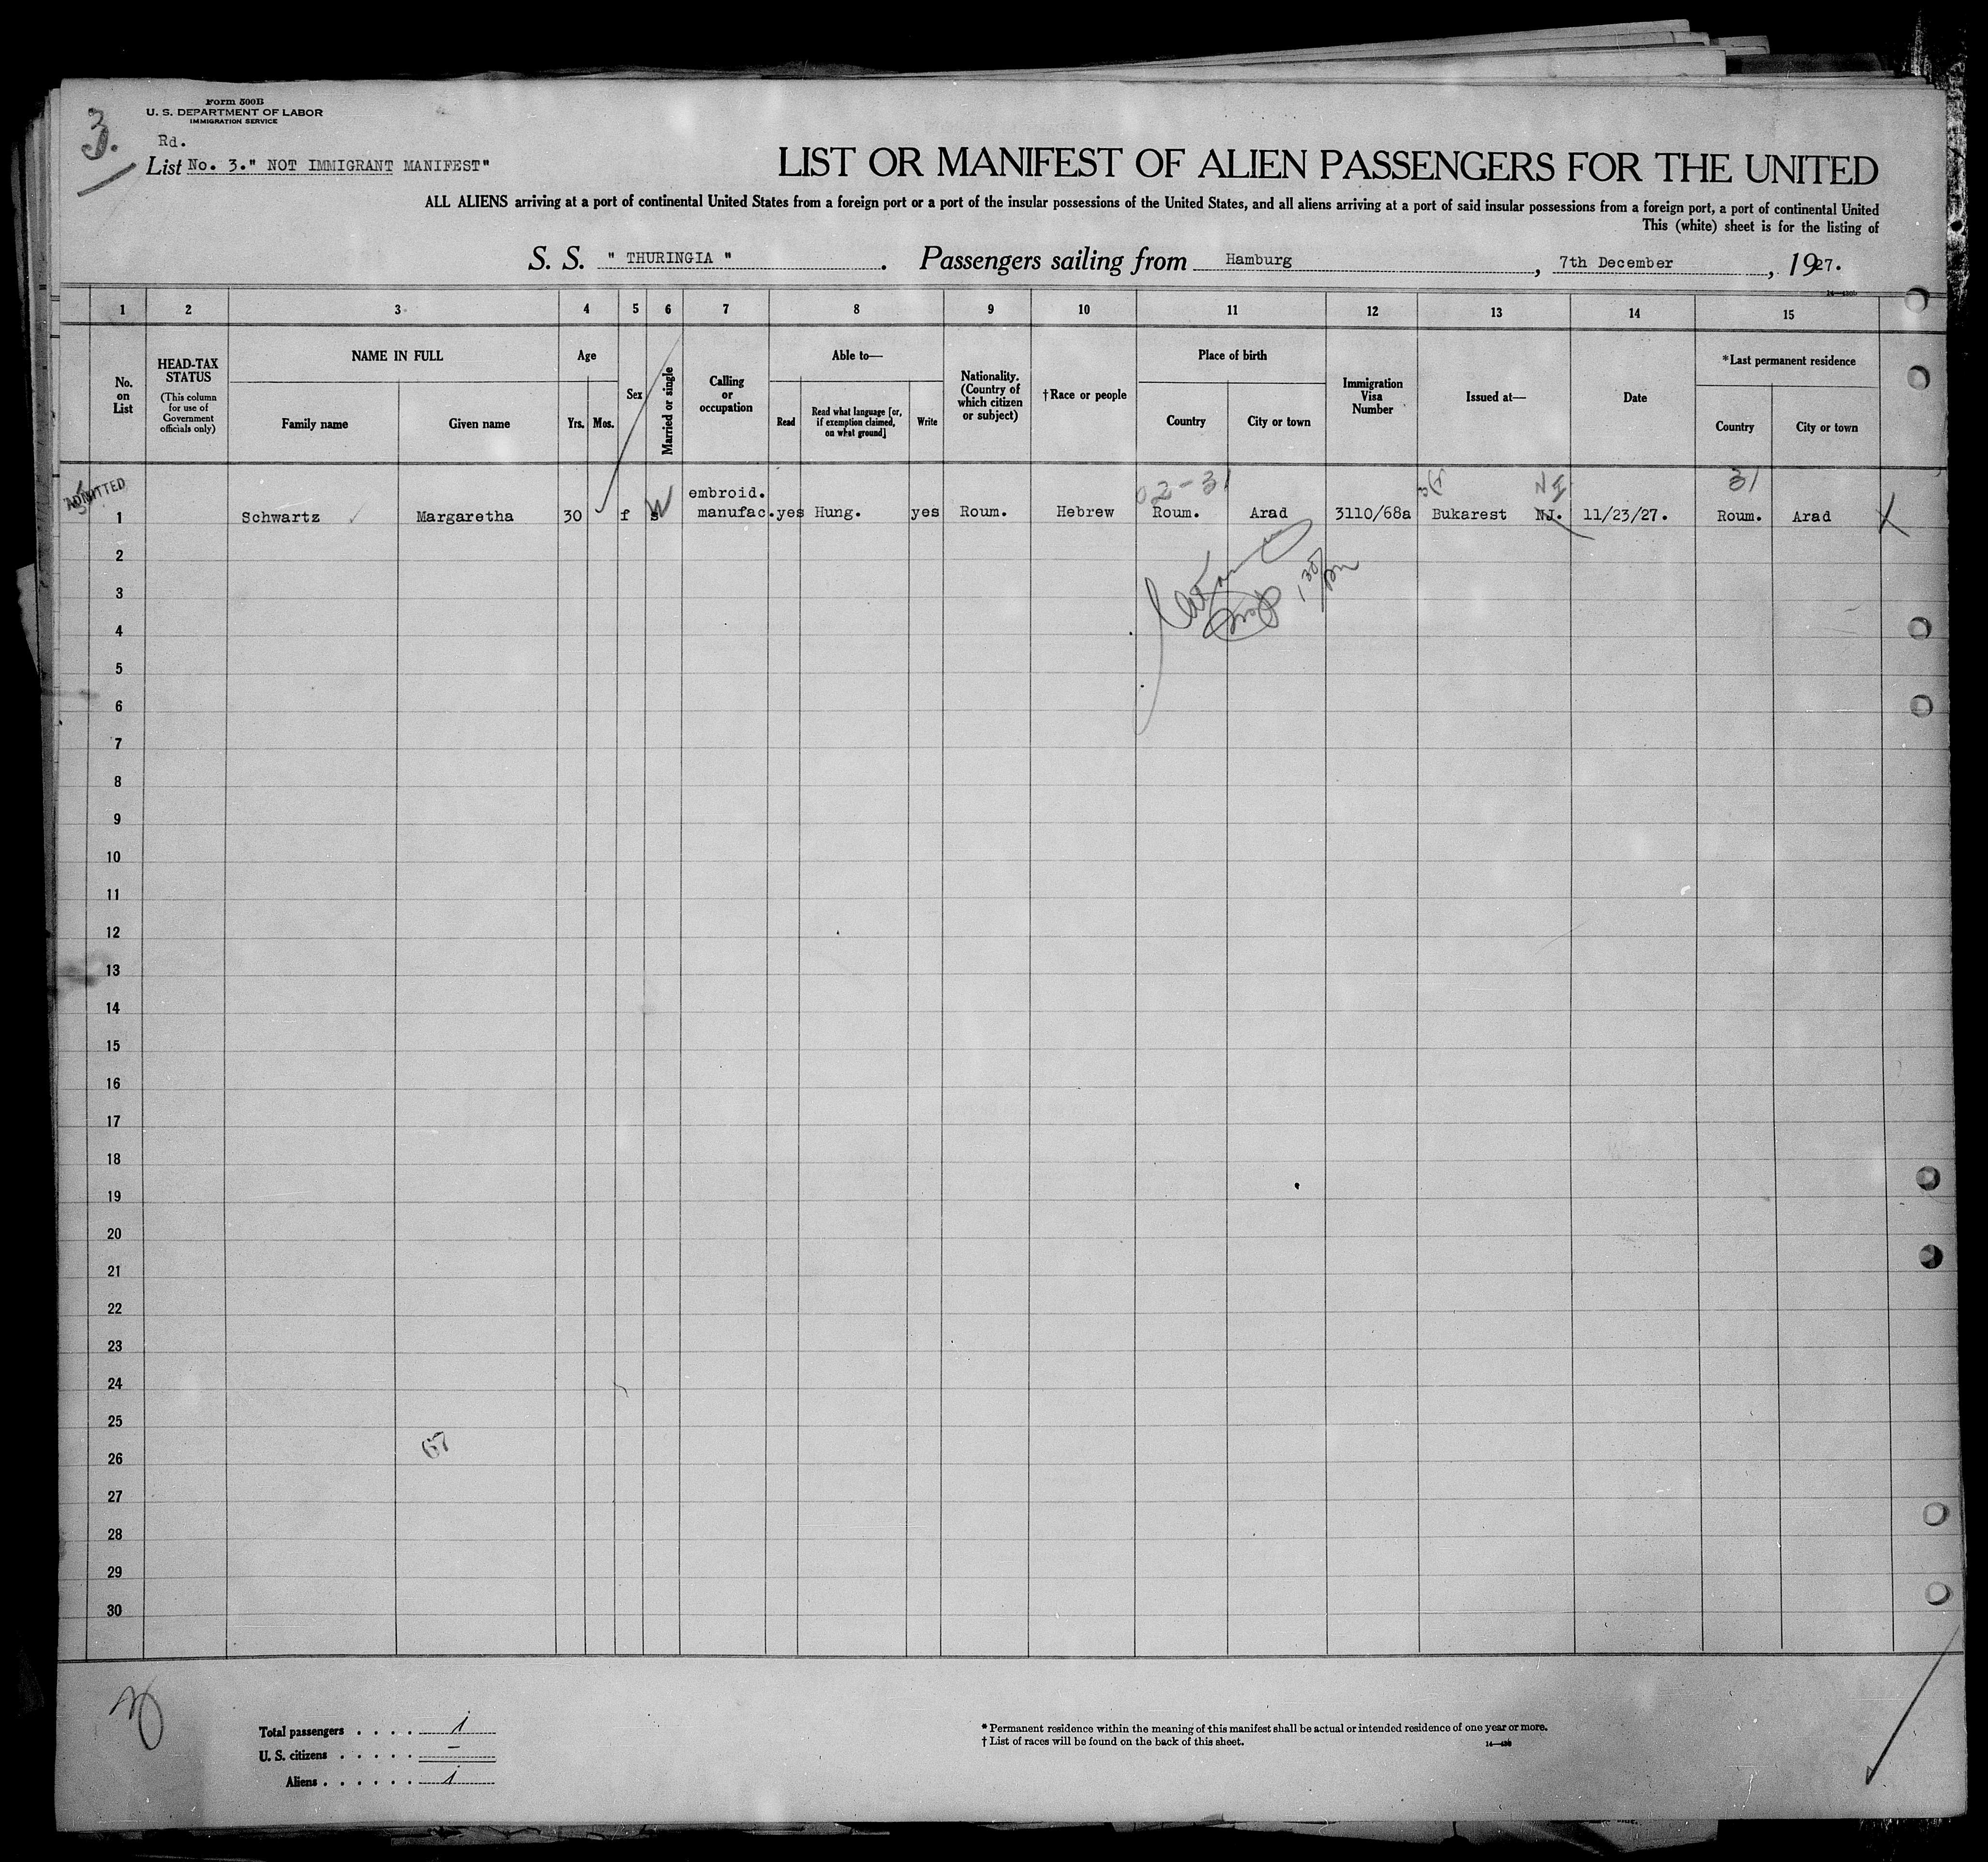 3.
Form 500B
U. S. DEPARTMENT OF LABOR
IMMIGRATION SERVICE
Rd.
List No. 3." NOT IMMIGRANT MANIFEST"
LIST OR MANIFEST OF ALIEN PASSENGERS FOR THE UNITED
ALL ALIENS arriving at a port of continental United States from a foreign port or a port of the insular possessions of the United States, and all aliens arriving at a port of said insular possessions from a foreign port, a port of continental United
This (white) sheet is for the listing of
S. S. " THURINGIA ". Passengers sailing from Hamburg, 7th December, 1927.
1 2 3 4 5 6 7 8 9 10 11 12 13 14 15
No. on List
HEAD-TAX STATUS (This column for use of Government officials only)
NAME IN FULL
Family name Given name
Age
Yrs. Mos.
Sex
Married or single
Calling or occupation
Able to—
Read Read what language [or, if exemption claimed, on what ground] Write
Nationality. (Country of which citizen or subject)
†Race or people
Place of birth
Country City or town
Immigration Visa Number
Issued at—
Date
*Last permanent residence
Country City or town
ADMITTED
02-31 31
embroid.
1 Schwartz Margaretha 30 f s W manufac. yes Hung. yes Roum. Hebrew Roum. Arad 3110/68a Bukarest NJ. 11/23/27. Roum. Arad X
2
3
4
5
6
7
8
9
10
11
12
13
14
15
16
17
18
19
20
21
22
23
24
25
26
27
28
29
30
67
Total passengers . . . . 1
U. S. citizens . . . . . –
Aliens . . . . . . 1
* Permanent residence within the meaning of this manifest shall be actual or intended residence of one year or more.
† List of races will be found on the back of this sheet.